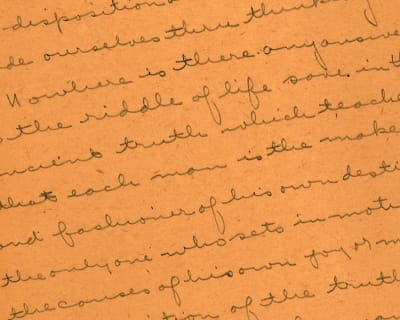 disposition
ourselves thru thinking
Nowhere is there any answe
the riddle of life save in th
ncient truth which teache
that each man is the make
and fashioner of his own desti
the only one who sets in moti
the causes of his own joy or m
tion of the truth